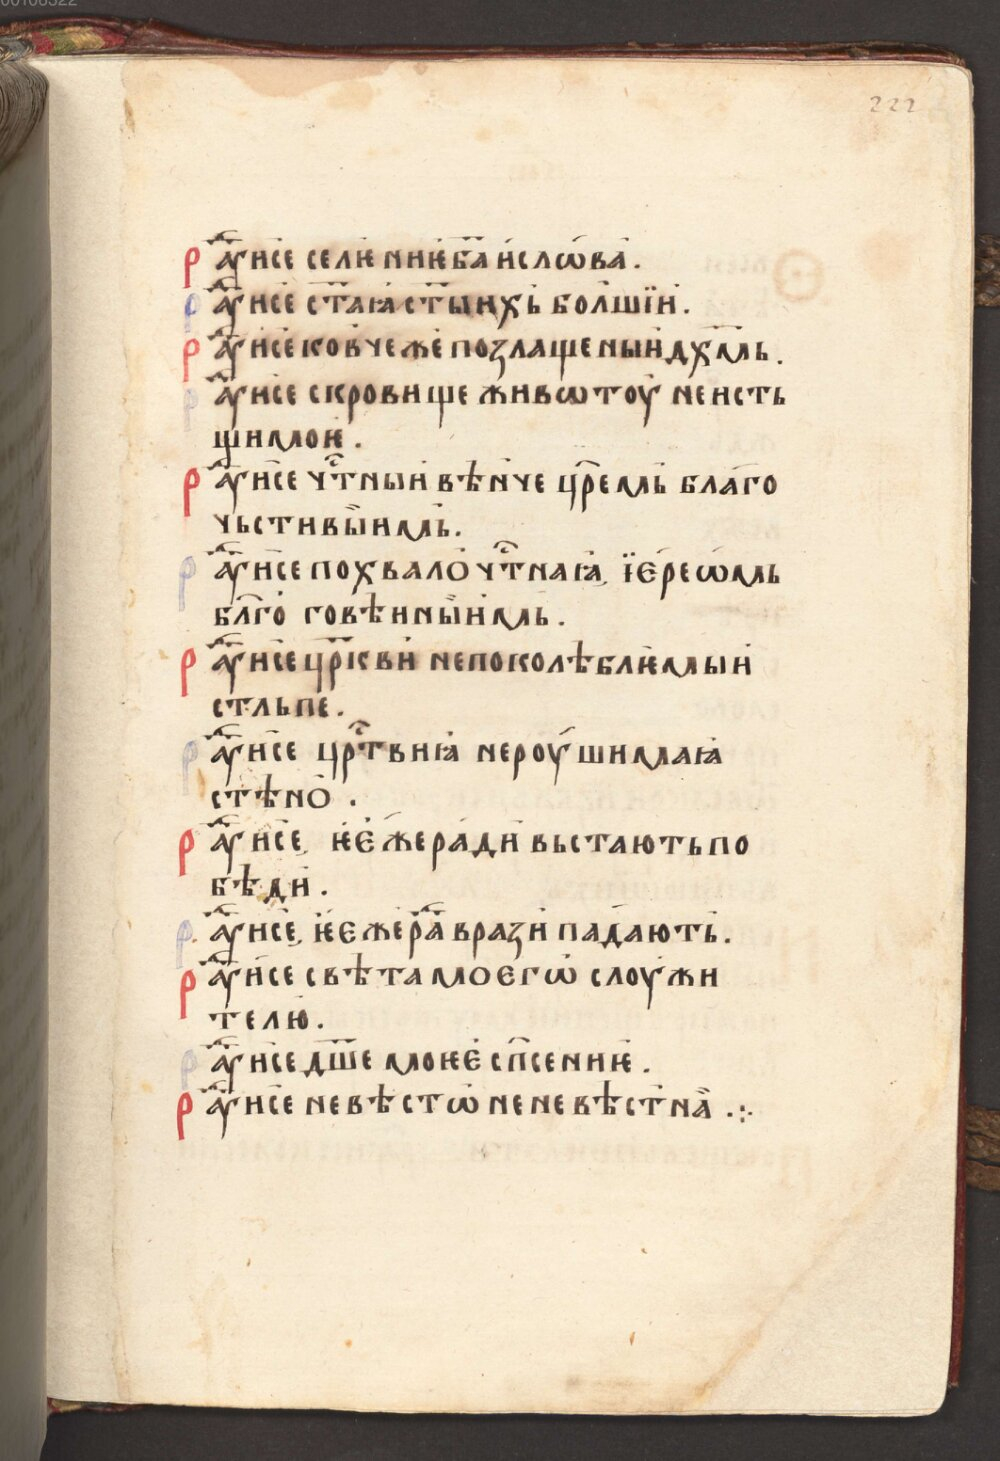 222
Рⷣаꙋи́сѐ селѥниѥ бг҃а и҆слѡ́ва̀.
Рⷣаꙋи́сѐ ст҃аꙗ ст҃ыихь бо́лшїи.
Рⷣаꙋи́сѐ ко́вчеже позлащеныи дх҃мь.
Рⷣаꙋи́сѐ скровище живѡтоу̀ неисть
щимоѥ.
Рⷣаꙋи́сѐ чⷭ҇тныи вѣ́нче цр҃емь благо
чьстивы̏имь.
Рⷣаꙋи́сѐ похвало̀ чⷭ҇тнаꙗ, їе́реѡ́мь
бл҃го говѣ́нны̏имь.
Рⷣаꙋи́сѐ цр҃кви непоколѣблѥмыи
стльпе.
Рⷣаꙋи́сѐ црⷭ҇твиꙗ нероу́шимаꙗ
стѣно̀.
Рⷣаꙋи́сѐ, ѥе́же ра́ди вьстають по
бѣди.
Рⷣаꙋи́сѐ, ѥе́же раⷣ врази па́дають.
Рⷣаꙋи́сѐ свѣта моегѡ̀ слоу́жи
телю̀.
Рⷣаꙋи́сѐ дш҃е моѥе́ сп҃сениѥ.
Рⷣаꙋи́сѐ невѣстѡ̀ неневѣ́стнаꙗ̏ .:·